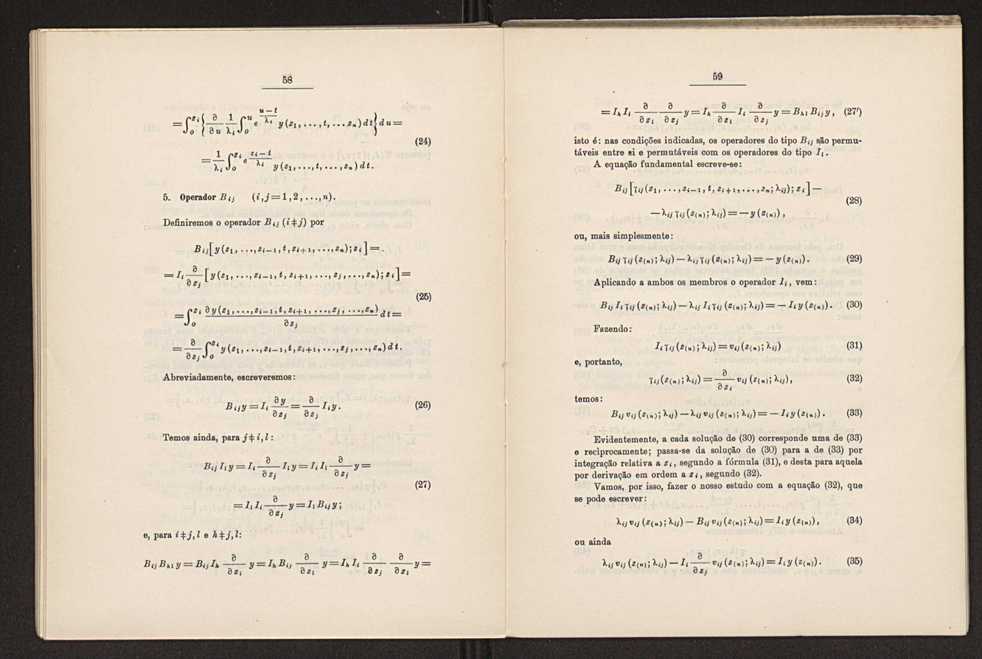 58
= ∫₀^{z_i} { ∂/∂u 1/λ_i ∫₀^u e^{(u−t)/λ_i} y(z₁, ..., t, ... z_n) dt } du =
(24)
= 1/λ_i ∫₀^{z_i} e^{(z_i−t)/λ_i} y(z₁, ..., t, ... z_n) dt.
5. Operador B_{ij} (i, j = 1, 2, ..., n).
Definiremos o operador B_{ij} (i ‡ j) por
B_{ij} [y(z₁, ..., z_{i−1}, t, z_{i+1}, ..., z_n); z_i] = .
= I_i ∂/∂z_j [y(z₁, ..., z_{i−1}, t, z_{i+1}, ..., z_j, ..., z_n); z_i] =
(25)
= ∫₀^{z_i} ∂y(z₁, ..., z_{i−1}, t, z_{i+1}, ..., z_j, ..., z_n)/∂z_j dt =
= ∂/∂z_j ∫₀^{z_i} y(z₁, ..., z_{i−1}, t, z_{i+1}, ..., z_j, ..., z_n) dt.
Abreviadamente, escreveremos:
B_{ij} y = I_i ∂y/∂z_j = ∂/∂z_j I_i y. (26)
Temos ainda, para j ‡ i, l:
B_{ij} I_l y = I_i ∂/∂z_j I_l y = I_i I_l ∂/∂z_j y =
(27)
= I_l I_i ∂/∂z_j y = I_l B_{ij} y;
e, para i ‡ j, l e h ‡ j, l:
B_{ij} B_{hl} y = B_{ij} I_h ∂/∂z_l y = I_h B_{ij} ∂/∂z_l y = I_h I_i ∂/∂z_j ∂/∂z_l y =
59
= I_h I_i ∂/∂z_l ∂/∂z_j y = I_h ∂/∂z_l I_i ∂/∂z_j y = B_{hl} B_{ij} y, (27')
isto é: nas condições indicadas, os operadores do tipo B_{ij} são permu-
táveis entre si e permutáveis com os operadores do tipo I_l.
A equação fundamental escreve-se:
B_{ij} [γ_{ij}(z₁, ..., z_{i−1}, t, z_{i+1}, ..., z_n; λ_{ij}); z_i] —
(28)
— λ_{ij} γ_{ij}(z_{(n)}; λ_{ij}) = — y(z_{(n)}),
ou, mais simplesmente:
B_{ij} γ_{ij}(z_{(n)}; λ_{ij}) — λ_{ij} γ_{ij}(z_{(n)}; λ_{ij}) = — y(z_{(n)}). (29)
Aplicando a ambos os membros o operador I_i, vem:
B_{ij} I_i γ_{ij}(z_{(n)}; λ_{ij}) — λ_{ij} I_i γ_{ij}(z_{(n)}; λ_{ij}) = — I_i y(z_{(n)}). (30)
Fazendo:
I_i γ_{ij}(z_{(n)}; λ_{ij}) = v_{ij}(z_{(n)}; λ_{ij}) (31)
e, portanto,
γ_{ij}(z_{(n)}; λ_{ij}) = ∂/∂z_i v_{ij}(z_{(n)}; λ_{ij}), (32)
temos:
B_{ij} v_{ij}(z_{(n)}; λ_{ij}) — λ_{ij} v_{ij}(z_{(n)}; λ_{ij}) = — I_i y(z_{(n)}). (33)
Evidentemente, a cada solução de (30) corresponde uma de (33)
e recìprocamente; passa-se da solução de (30) para a de (33) por
integração relativa a z_i, segundo a fórmula (31), e desta para aquela
por derivação em ordem a z_i, segundo (32).
Vamos, por isso, fazer o nosso estudo com a equação (32), que
se pode escrever:
λ_{ij} v_{ij}(z_{(n)}; λ_{ij}) — B_{ij} v_{ij}(z_{(n)}; λ_{ij}) = I_i y(z_{(n)}), (34)
ou ainda
λ_{ij} v_{ij}(z_{(n)}; λ_{ij}) — I_i ∂/∂z_j v_{ij}(z_{(n)}; λ_{ij}) = I_i y(z_{(n)}). (35)